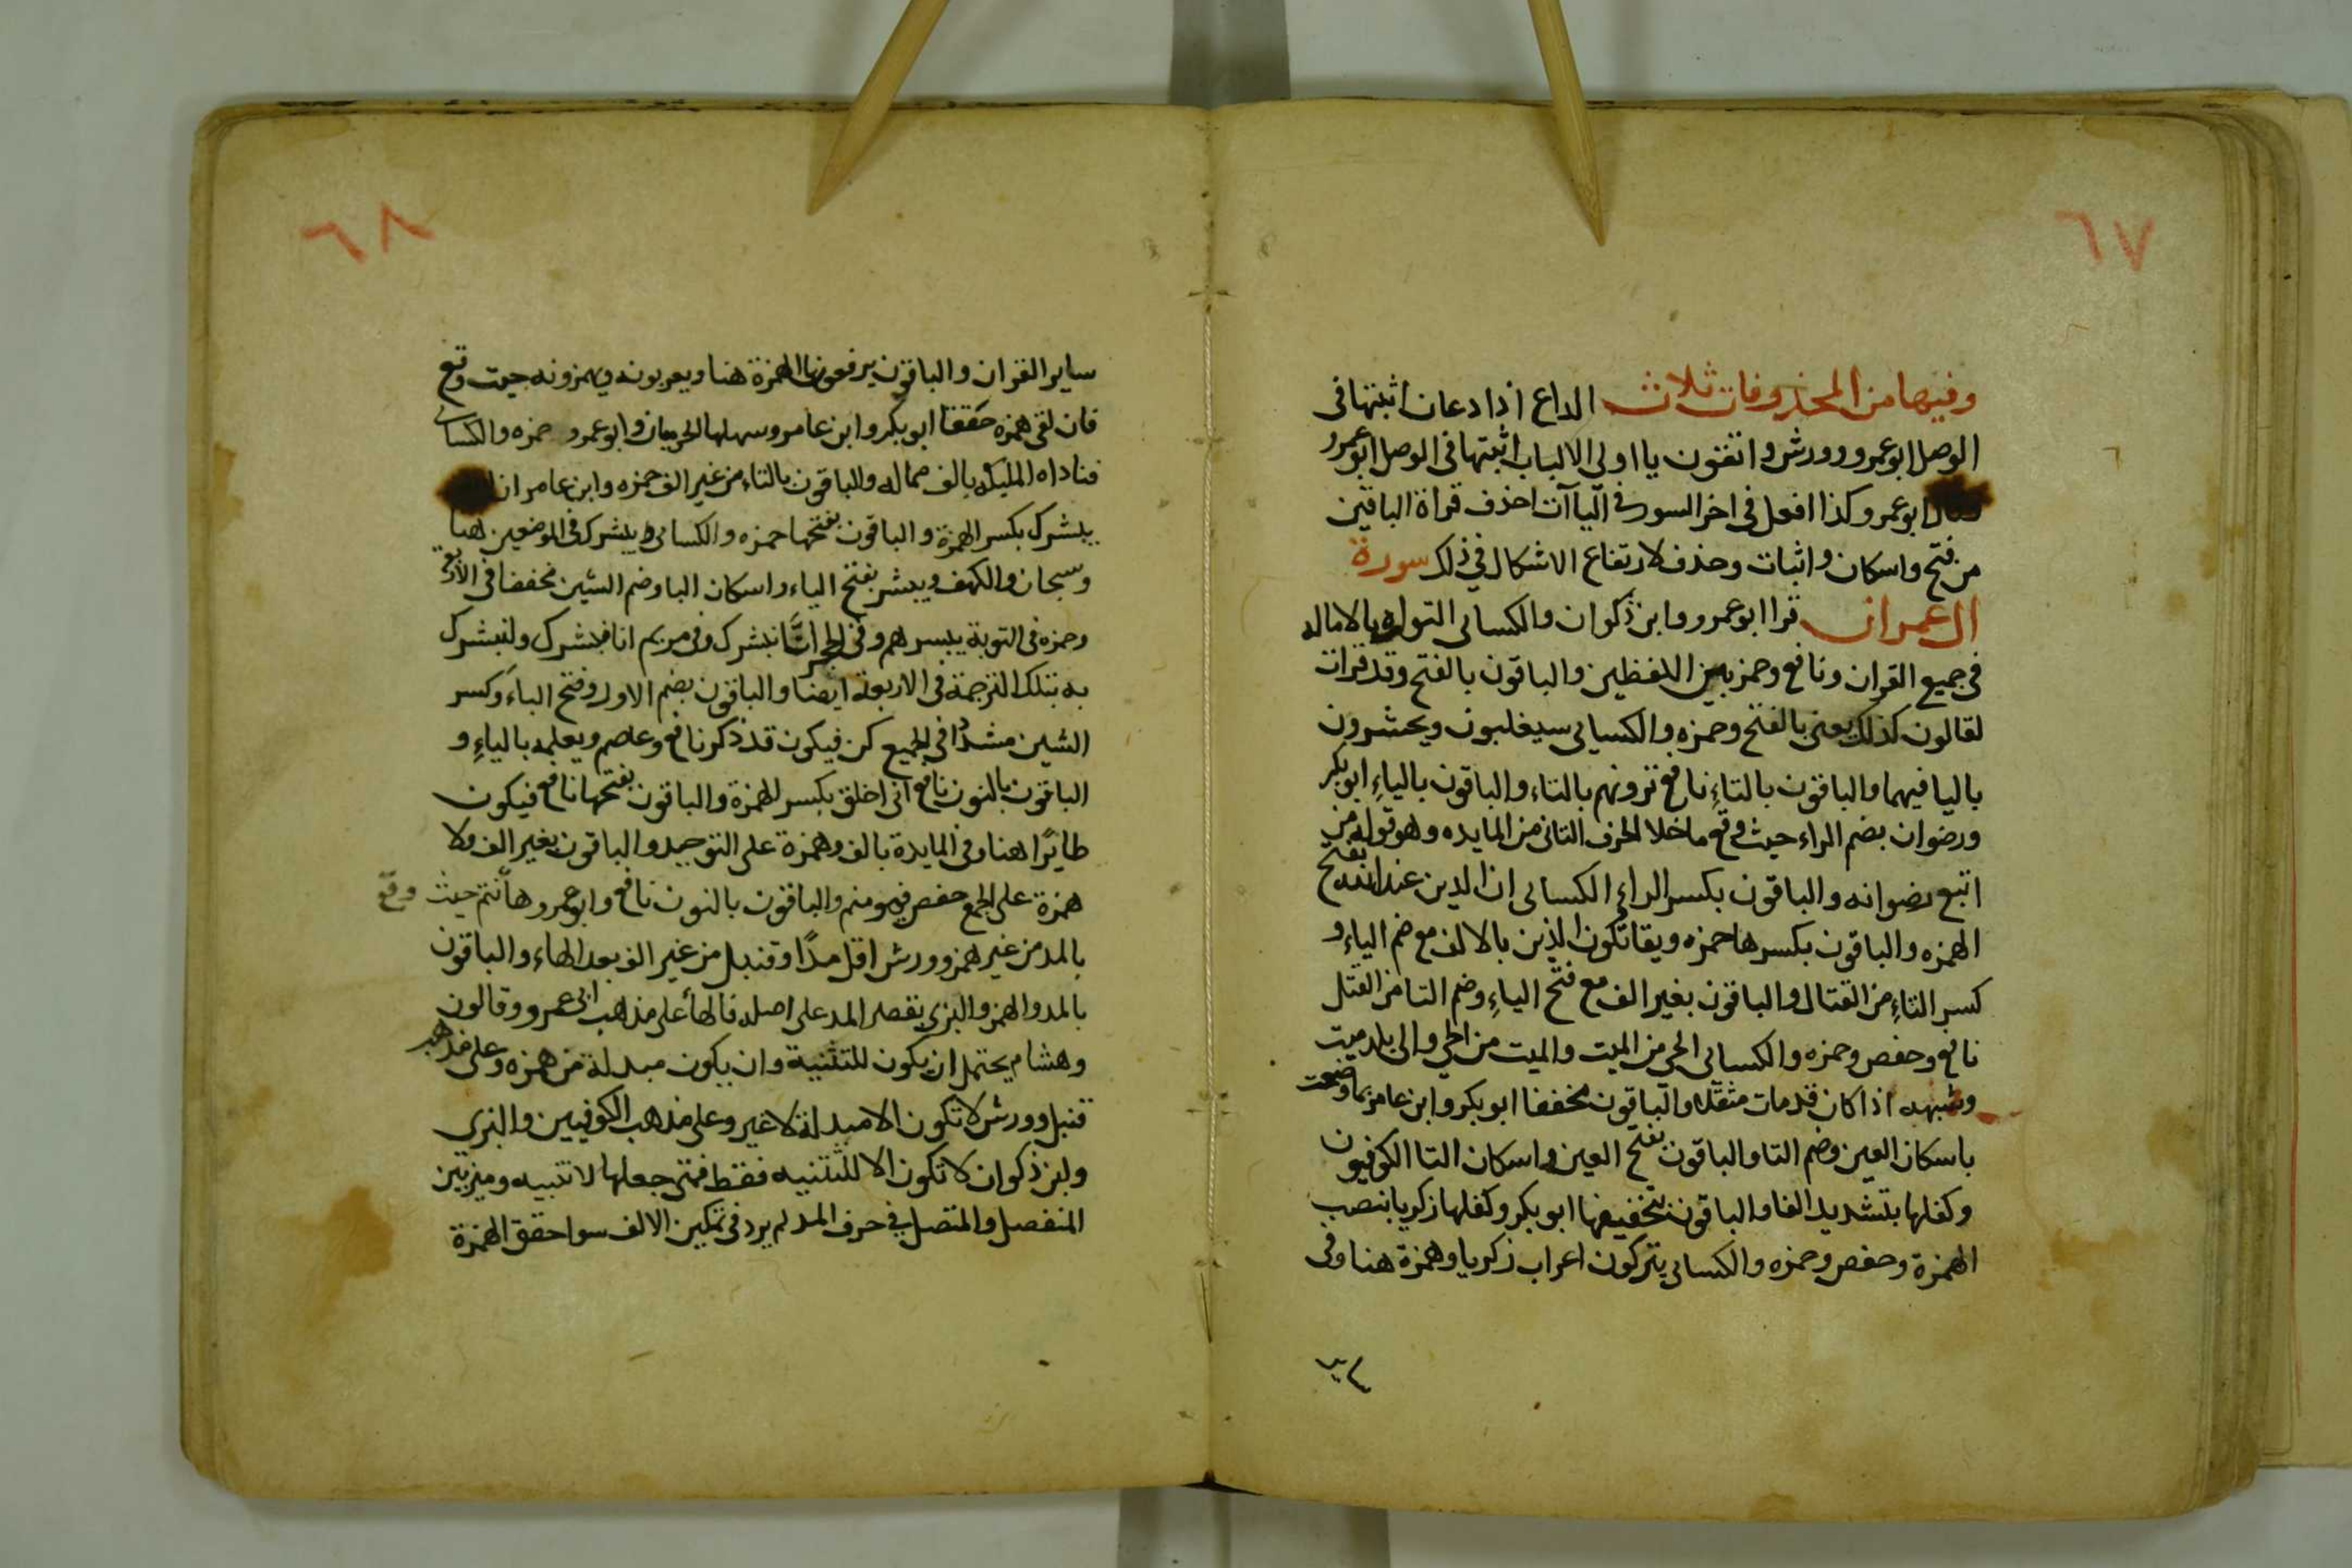 ٦٧
وفيها من المحذوفات ثلاث الداع اذا دعان اثبتها فى
الوصل ابو عمرو وورش واتقون يا اولى الالباب اثبتها فى الوصل ابو عمرو
ابو عمرو وكذا افعل فى اخر السور فى الياآت احذف قراة الباقين
من فتح واسكان واثبات وحذف لارتفاع الاشكال فى ذلك سورة
ال عمران قرا ابو عمرو وابن ذكوان والكسائى التوراة بالاماله
فى جميع القران ونافع وحمزه بين اللفظين والباقون بالفتح وقد قرات
لقالون كذلك يعنى بالفتح وحمزه والكسائى سيغلبون ويحشرون
باليا فيهما والباقون بالتاءِ نافع ترونهم بالتاء والباقون بالياءِ ابو بكر
ورضوان بضم الراء حيث وقع ما خلا الحرف الثانى من المايده وهو قوله من
اتبع رضوانه والباقون بكسر الراء الكسائى ان الدين عند الله بفتح
الهمزه والباقون بكسرها حمزه ويقاتلون الذين بالالف مع ضم الياءِ و
كسر التاءِ من القتال والباقون بغير الف مع فتح الياءِ وضم التا من القتل
نافع وحفص وحمزه والكسائى الحى من الميت والميت من الحى والى بلد ميت
وشبهه اذا كان قد مات مثقله والباقون مخففا ابو بكر وابن عامر بما وضعت
باسكان العين وضم التا والباقون بفتح العين واسكان التا الكوفيون
وكفلها بتشديد الفا والباقون بتخفيفها ابو بكر وكفلها زكريا بنصب
الهمزة وحفص وحمزه والكسائى يتركون اعراب زكريا وهمزة هنا وفى
٦٨
ساير القران والباقون يرفعون الهمزة هنا ويعربونه ويهمزونه حيث وقع
فان لقى همزه حققها ابو بكر وابن عامر وسهلها الحرميان وابو عمرو حمزه والكسائى
فناداه المليكه بالف مماله والباقون بالتاء من غير الف حمزه وابن عامر ان
يبشرك بكسر الهمزة والباقون بفتحها حمزه والكسائى يبشرك فى الموضعين هنا
وسبحان والكهف ويبشر بفتح الياء واسكان البا وضم الشين مخففا فى الاربعة
وحمزه فى التوبة يبشرهم وفى الحجر انَّا نبشرك وفى مريم انا نبشرك ولتبشرك
به بتلك الترجمة فى الاربعة ايضا والباقون بضم الاول وفتح الباء وكسر
الشين مشددًا فى الجميع كن فيكون قد ذكر نافع وعاصم ويعلمه بالياءِ و
الباقون بالنون نافع انى اخلق بكسر الهمزة والباقون بفتحها نافع فيكون
طايرًا هنا وفى المايدة بالف وهمزة على التوحيد والباقون بغير الف ولا
همزة على الجمع حفص فيوفيهم والباقون بالنون نافع وابو عمرو هاأنتم حيث وقع
بالمد من غير همز وورش اقل مدًا وقنبل من غير الف بعد الهاء والباقون
بالمد والهمز والبزى يقصر المد على اصله فالهاء على مذهب ابى عمرو وقالون
وهشام يحتمل ان يكون للتثنية وان يكون مبدلة من همزه وعلى مذهب
قنبل وورش لا تكون الا مبدلة لا غير وعلى مذهب الكوفيين والبزى
وابن ذكوان لا تكون الا للتثنيه فقط فمتى جعلها لا تنبيه وميز بين
المنفصل والمتصل فى حرف المد لم يرد فى تمكين الالف سوا حقق الهمزة